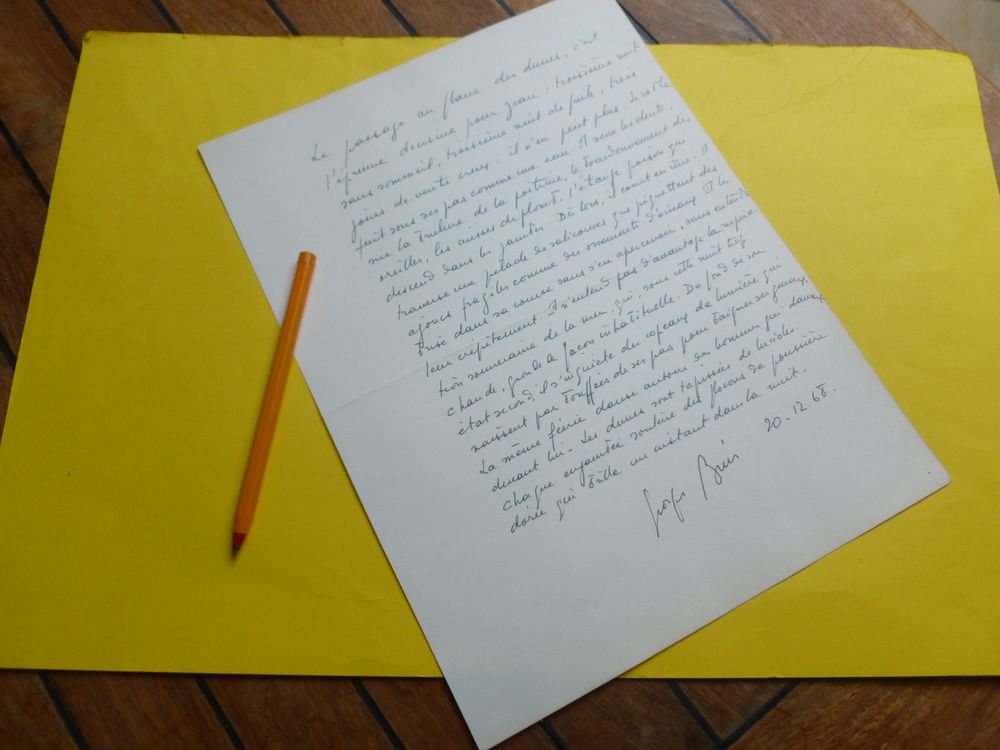 Le passage au flanc des dunes, c'est
l'épreuve décisive pour Jean : troisième nuit
sans sommeil, troisième nuit de fuite, trois
jours de ventre creux : il n'en peut plus. Le sable
fuit sous ses pas comme une eau. Il serre les dents,
nie la brûlure de la poitrine, le bourdonnement des
oreilles, les cuisses de plomb, l'étrange poison qui
descend dans les jambes. Dès lors, il court en rêve. Il
traverse une pelade de salicornes que piquettent des
ajoncs fragiles comme des ossements d'oiseaux. Il les
brise dans sa course sans s'en apercevoir, sans entendre
leur crépitement. Il n'entend pas davantage la respira-
tion souveraine de la mer, qui, sous cette nuit trop
chaude, gronde de façon inhabituelle. Du fond de son
état second, il s'inquiète des copeaux de lumière qui
naissent par bouffées de ses pas pour baigner ses genoux.
La même féerie danse autour des hommes qui
devant lui. Les dunes sont tapissées de lucioles.
Chaque enjambée soulève des flocons de poussière
dorée qui brille un instant dans la nuit.
20-12 68.
Georges